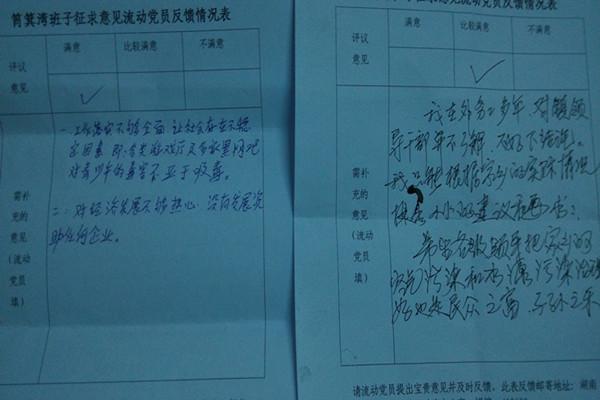 筲箕湾班子征求意见流动党员反馈情况表
评议意见
满意
比较满意
不满意
✓
需补充的意见(流动党员填)
一、工作落实不够全面,让社会存在不稳
定因素,即:各类游戏厅及各家黑网吧
对青少年的毒害不亚于吸毒。
二、对经济发展不够热心,没有发展资
助任何企业。
征求意见流动党员反馈情况表
评议意见
满意
比较满意
不满意
✓
需补充的意见(流动党员填)
我在外务工多年,对镇领
导干部并不了解,不好下结论。
我只能根据家乡的实际情况
提 小小的建议
希望各级领导把家乡的
污染和 污染治理
好 是民众之 ,子孙之
请流动党员提出宝贵意见并及时反馈,此表反馈邮寄地址:湖南